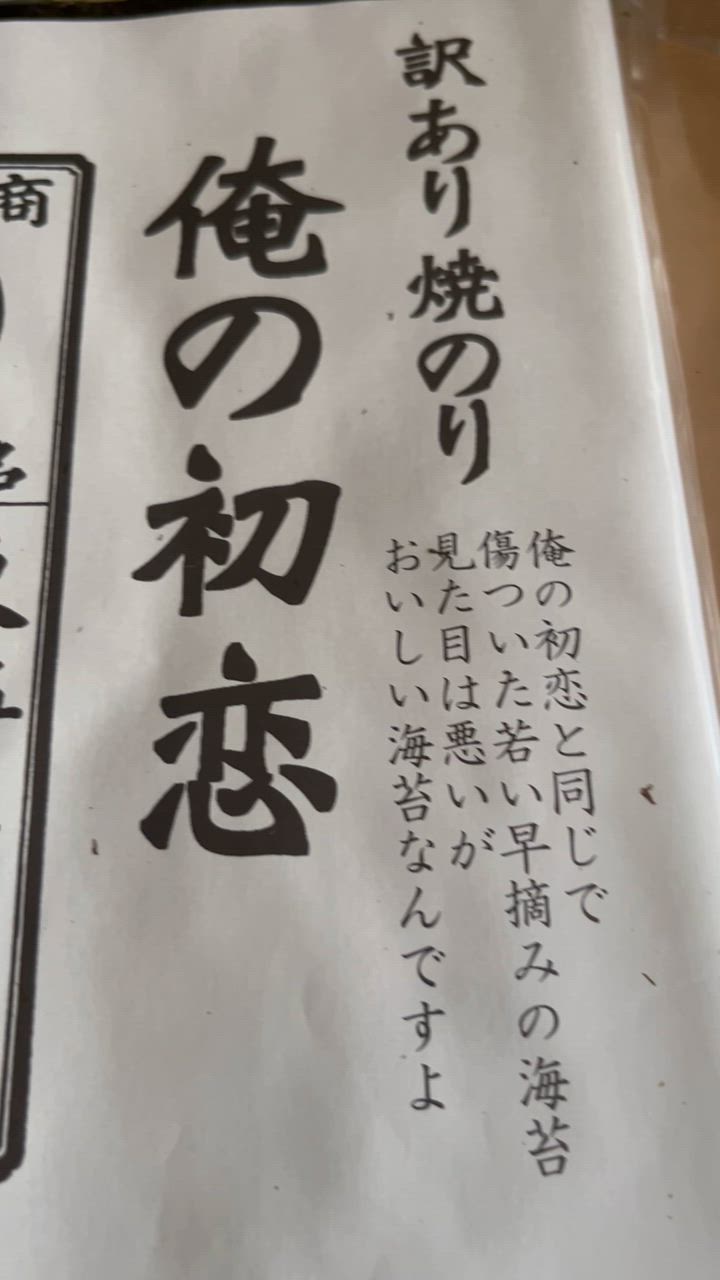 訳あり焼のり
俺の初恋と同じで
傷ついた若い早摘みの海苔
見た目は悪いが
おいしい海苔なんですよ
俺の初恋
商